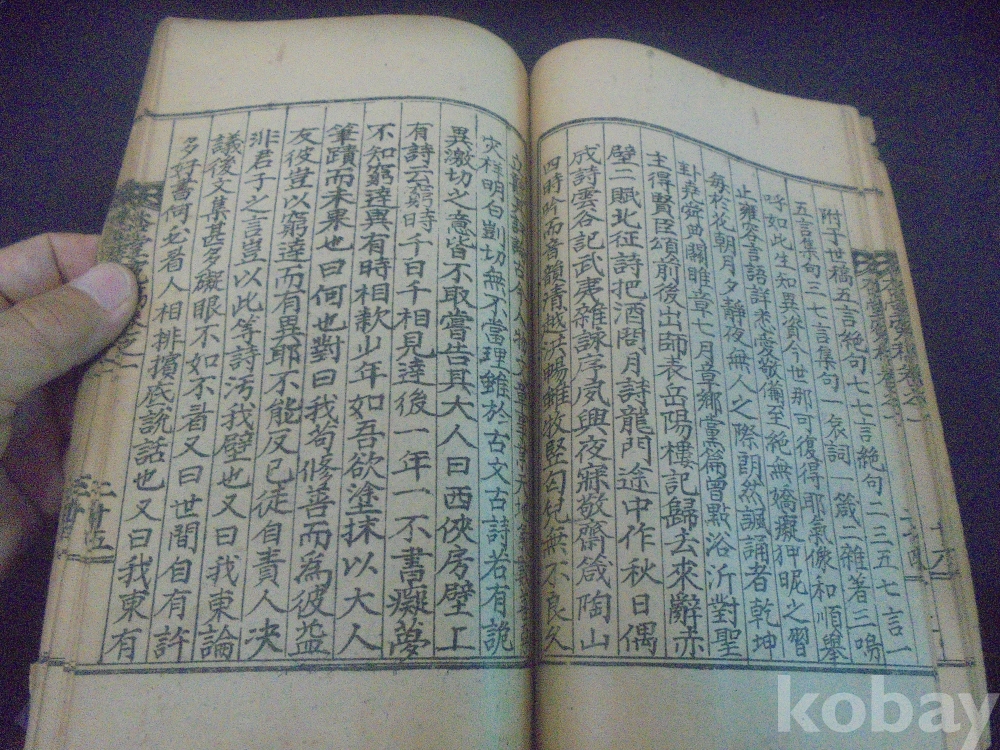 附子世稿五言絶句七七言絶句二三五七言一
五言集句三七言集句一哀詞一箴二雜著三鳴
呼如此生知異資今世那可復得耶氣像和順擧
止雍容言語詳悉愛敬備至絶無驕癡狎昵之習
每於花朝月夕靜夜無人之際朗然諷誦者乾坤
卦堯舜典關雎章七月章鄕黨篇曾點浴沂對聖
主得賢臣頌前後出師表岳陽樓記歸去來辭赤
壁二賦北征詩把酒問月詩龍門途中作秋日偶
成詩雲谷記武夷雜詠序夙興夜寐敬齋箴陶山
四時吟而音韻淸越洪暢雖牧竪匃兒無不良久
明白剴切無不當理雖於古文古詩若有詭
異激切之意皆不取嘗告其大人曰西俠房壁上
有詩云窮時千日千相見達後一年一不書癡夢
不知窮達與有時相欺少年如吾欲塗抹以大人
筆蹟而未果也曰何也對曰我苟修善而爲彼益
友彼豈以窮達而有異耶不能反已徒自責人决
非君子之言豈以此等詩汚我壁也又曰我東論
議後文集甚多礙眼不如不看又曰世間自有許
多好書何必看人相排擯底說話也又曰我東有
二十五
kobay